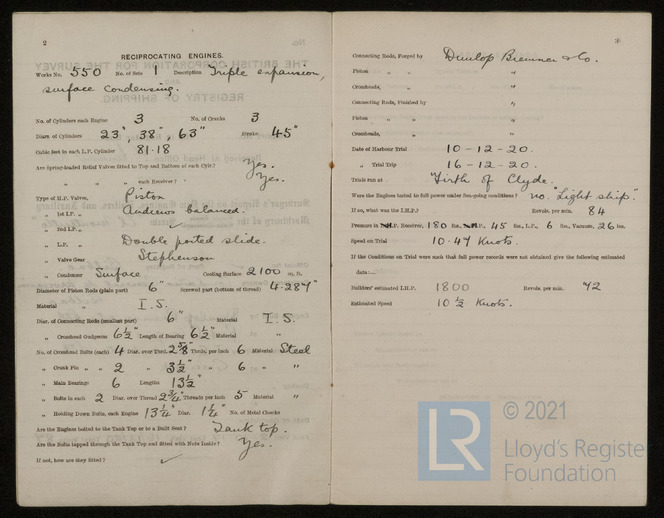 2
RECIPROCATING ENGINES.
Works No. 550 No. of Sets 1 Description Triple expansion,
surface condensing.
No. of Cylinders each Engine 3 No. of Cranks 3
Diars. of Cylinders 23", 38", 63" Stroke 45"
Cubic feet in each L.P. Cylinder 81.18
Are Spring-loaded Relief Valves fitted to Top and Bottom of each Cylr.? Yes.
" " " each Receiver? Yes.
Type of H.P. Valves, Piston
" 1st I.P. " Andrews balanced.
" 2nd I.P. " ✓
" L.P. " Double ported slide.
" Valve Gear Stephenson
" Condenser Surface Cooling Surface 2100 sq. ft.
Diameter of Piston Rods (plain part) 6" Screwed part (bottom of thread) 4.287"
Material I.S.
Diar. of Connecting Rods (smallest part) 6" Material I.S.
" Crosshead Gudgeons 6½" Length of Bearing 6½" Material "
No. of Crosshead Bolts (each) 4 Diar. over Thrd. 2⅜" Thrds. per inch 6 Material Steel
" Crank Pin " " 2 " 3½" " 6 " "
" Main Bearings 6 Lengths 13½"
" Bolts in each 2 Diar. over Thread 2¾" Threads per inch 5 Material "
" Holding Down Bolts, each Engine Diar. 1¼" No. of Metal Chocks
Are the Engines bolted to the Tank Top or to a Built Seat? Tank top.
Are the Bolts tapped through the Tank Top and fitted with Nuts Inside? Yes.
If not, how are they fitted? ✓
3
Connecting Rods, Forged by Dunlop Bremner & Co.
Piston " " "
Crossheads, " "
Connecting Rods, Finished by "
Piston " " "
Crossheads, " "
Date of Harbour Trial 10-12-20.
" Trial Trip 16-12-20.
Trials run at Firth of Clyde.
Were the Engines tested to full power under Sea-going conditions? no. "Light ship."
If so, what was the I.H.P.? Revols. per min. 84
Pressure in 1st I.P. Receiver, 180 lbs., I.P. 45 lbs., L.P. 6 lbs., Vacuum, 26 ins.
Speed on Trial 10.47 Knots.
If the Conditions on Trial were such that full power records were not obtained give the following estimated
data:—
Builders' estimated I.H.P. 1800 Revols. per min. 72
Estimated Speed 10½ Knots.
LR
© 2021
Lloyd's Register
Foundation